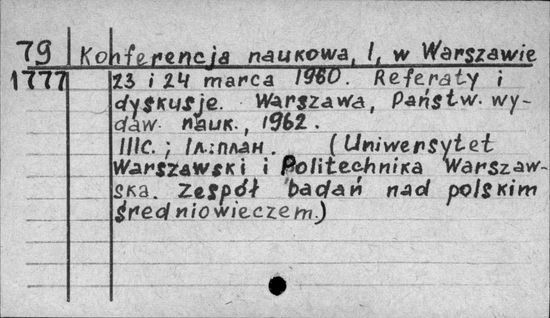 79 Konferencja naukowa, I, w Warszawie
1777 23 i 24 marca 1960. Referaty i
dyskusje. Warszawa, Państw. wy-
daw. nauk., 1962.
111с.; 1л.:план. (Uniwersytet
Warszawski i Politechnika Warszaw-
ska. Zespół badań nad polskim
średniowieczem.)